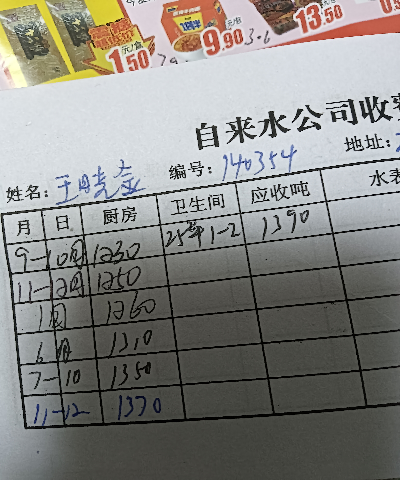 1.50
元/盒
9.90
3.6
13.50
自来水公司收费
姓名: 王晓金 编号: 140354 地址:
月 日 厨房 卫生间 应收吨 水表
9-10月 1230 25年1-2 1390
11-12月 1250
1月 1260
6月 1310
7-10 1350
11-12 1370